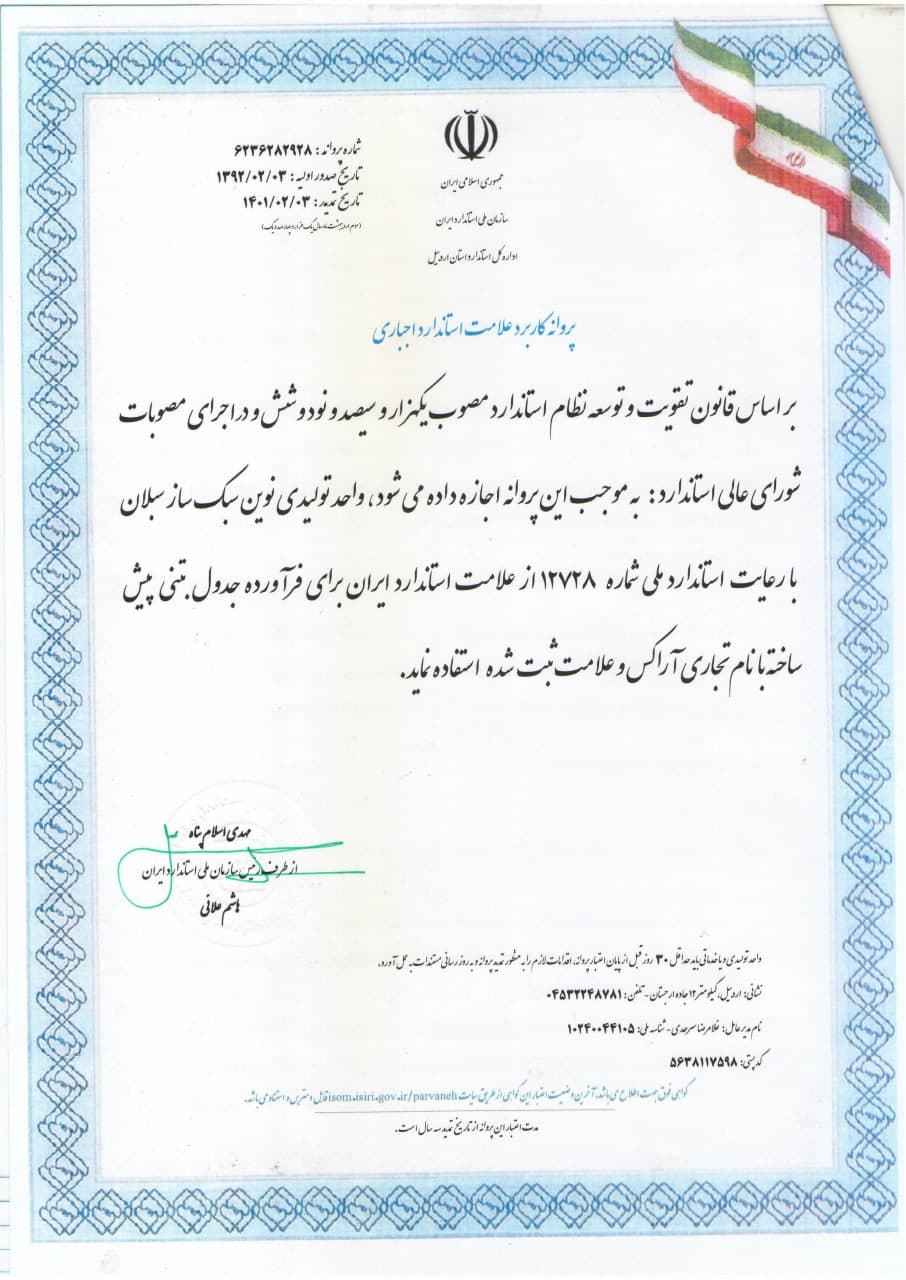 جمهوری اسلامی ایران
سازمان ملی استاندارد ایران
اداره کل استاندارد استان اردبیل
شماره پروانه: ۶۲۳۶۲۸۲۹۲۸
تاریخ صدور اولیه: ۱۳۹۲/۰۲/۰۳
تاریخ تمدید: ۱۴۰۱/۰۲/۰۳
(سوم اردیبهشت ماه سال یک هزار و چهارصد و یک)
پروانه کاربرد علامت استاندارد اجباری
بر اساس قانون تقویت و توسعه نظام استاندارد مصوب یکهزار و سیصد و نود و شش و در اجرای مصوبات
شورای عالی استاندارد: به موجب این پروانه اجازه داده می شود، واحد تولیدی نوین سبک ساز سبلان
با رعایت استاندارد ملی شماره ۱۲۷۲۸ از علامت استاندارد ایران برای فرآورده جدول بتنی پیش
ساخته با نام تجاری آراکس و علامت ثبت شده استفاده نماید.
مهدی اسلام پناه
از طرف رئیس سازمان ملی استاندارد ایران
هاشم علائی
واحد تولیدی و یا خدماتی باید حداقل ۳۰ روز قبل از پایان اعتبار پروانه، اقدامات لازم را به منظور تمدید پروانه و به روز رسانی مستندات به عمل آورد.
نشانی: اردبیل، کیلومتر ۱۲ جاده ارجستان - تلفن: ۰۴۵۳۲۲۴۸۷۸۱
نام مدیر عامل: غلامرضا سرحدی - شناسه ملی: ۱۰۲۴۰۰۴۴۱۰۵
کد پستی: ۵۶۳۸۱۱۷۵۹۸
گواهی فوق جهت اطلاع می باشد. آخرین وضعیت اعتبار این گواهی از طریق سایت isom.isiri.gov.ir/parvaneh قابل دسترس و استناد می باشد.
مدت اعتبار این پروانه از تاریخ تمدید سه سال است.